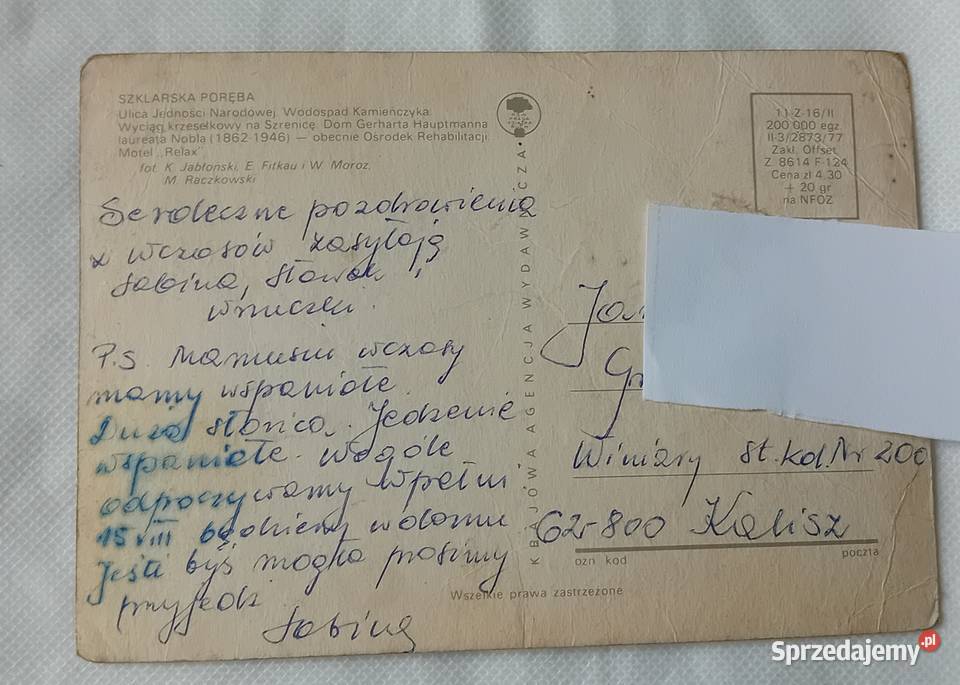 SZKLARSKA PORĘBA
Ulica Jedności Narodowej. Wodospad Kamieńczyka.
Wyciąg krzesełkowy na Szrenicę. Dom Gerharta Hauptmanna
laureata Nobla (1862-1946) — obecnie Ośrodek Rehabilitacji.
Motel „Relax"
fot. K. Jabłoński, E. Fitkau i W. Moroz,
M. Raczkowski
Serdeczne pozdrowienia
z wczasów zasyłają
Sabina, Sławek i
wnuczek.
P.S. Mamusiu wczasy
mamy wspaniałe.
Dużo słońca. Jedzenie
wspaniałe. Wogóle
odpoczywamy wpełni
15 VIII będziemy w domu
Jeśli byś mogła prosimy
przyjedź
Sabina
KRAJOWA AGENCJA WYDAWNICZA
11-Z-16/II
200 000 egz.
II-3/2873/77
Zakł. Offset.
Z. 8614 F-124
Cena zł 4,30
+ 20 gr
na NFOZ
Winiary st. kol. Nr 200
62-800 Kalisz
ozn kod
poczta
Wszelkie prawa zastrzeżone
Sprzedajemy.pl